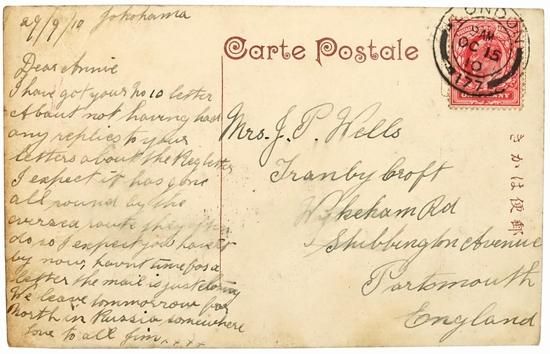 29/9/10 Yokohama
Carte Postale
LONDON
OC 15
10
177
Dear Annie
I have got your No 10 letter
About not having had
any replies to your
letters about the Reg letter
I expect it has gone
all round by the
oversea route they often
do so I expect you have it
by now, havnt time for a
letter the mail is just closing
We leave tommorrow for
North in Russia somewhere
love to all Jim
Mrs. J. P. Wells
Tranby Croft
Wykeham Rd
Stubbington Avenue
Portsmouth
England
きかは便郵